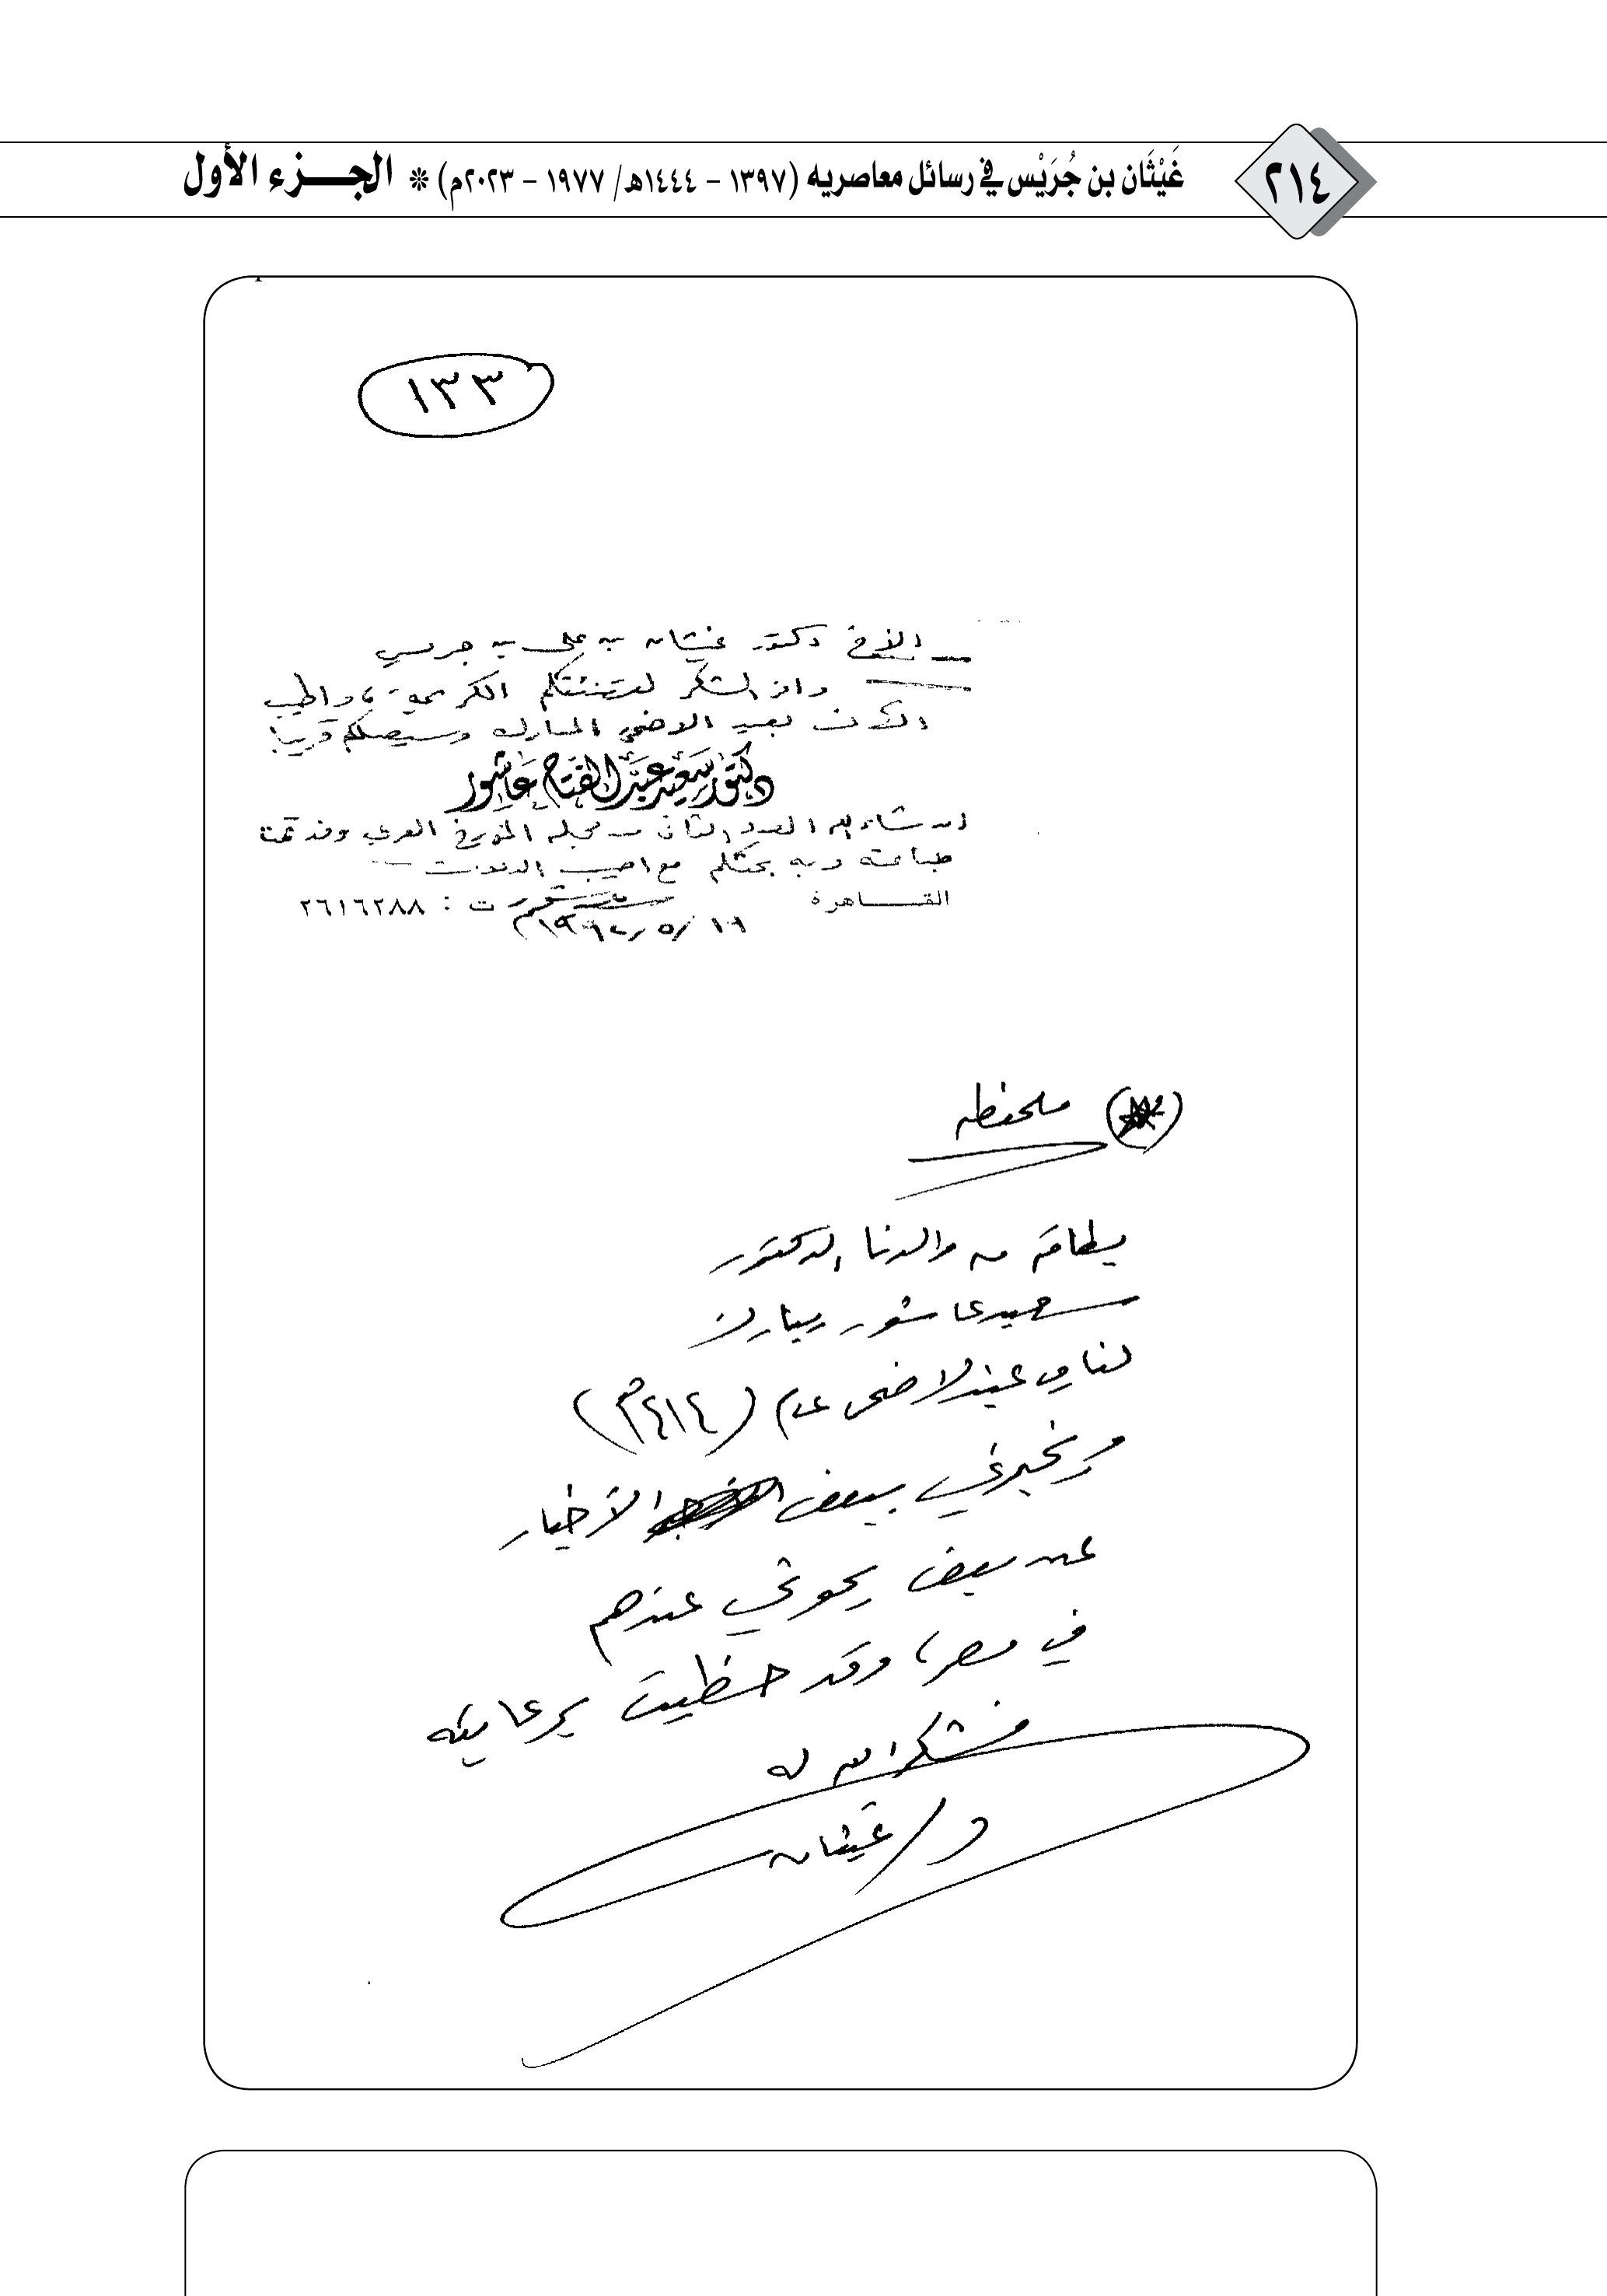 ٢١٤
غَيْثَان بن جُرَيْس في رسائل معاصريه (١٣٩٧ - ١٤٤٤هـ/ ١٩٧٧ - ٢٠٢٣م) * الجـــزء الأول
١٣٣
الأخ دكتور غيثان بن على بن جريس
وافر الشكر لتهنئتكم الكريمة، واطيب
بعيد الاضحى المبارك وسيصلكم قريبا
دكتور سعيد عبد الفتاح عاشور
ان شاء الله العدد الثانى من مجلة المؤرخ العربي وقد تمت
طباعته وبه بحثكم مع اطيب
القـــاهرة ت : ٢٦١٦٢٨٨
ملحظه
بطاقة من والدنا الدكتور
سعيد عاشور يبارك
لنا في عيد الاضحى عام (١٤١٤هـ)
ويخبرني ببعض الأخبار
عن بعض بحوثي عندهم
في مصر، وقد حظيت برعايته
فشكر الله له
د/ غيثان